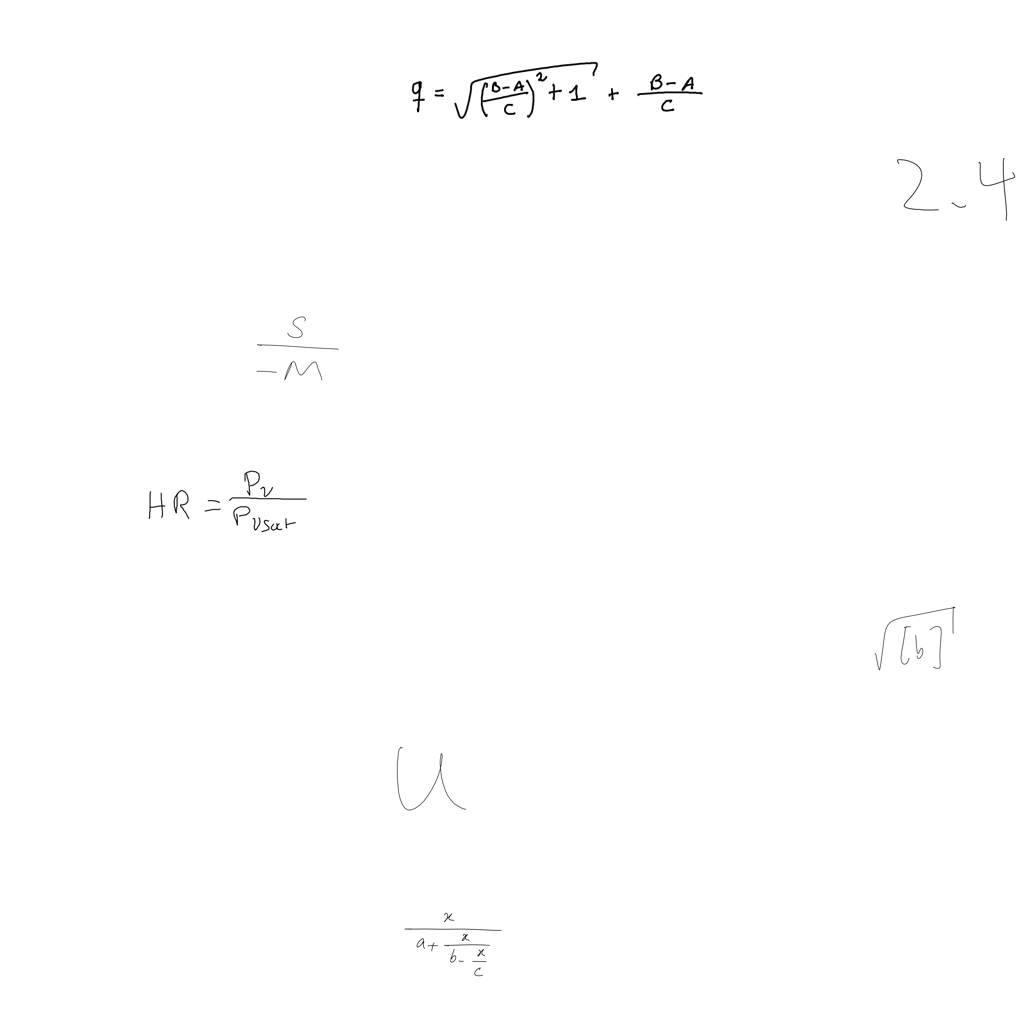 $q = \sqrt{\left(\frac{B-A}{C}\right)^2 + 1} + \frac{B-A}{C}$
2.4
$\frac{s}{-M}$
$HR = \frac{P_v}{P_{vsat}}$
$\sqrt{[b]}$
u
$\frac{x}{a+\frac{x}{b-\frac{x}{c}}}$